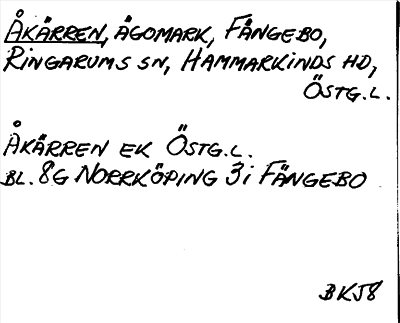 ÅKÄRREN, ÄGOMARK, FÄNGEBO,
RINGARUMS SN, HAMMARKINDS HD,
ÖSTG.L.
ÅKÄRREN EK ÖSTG.L.
BL. 8G NORRKÖPING 3i FÄNGEBO
BKJ8